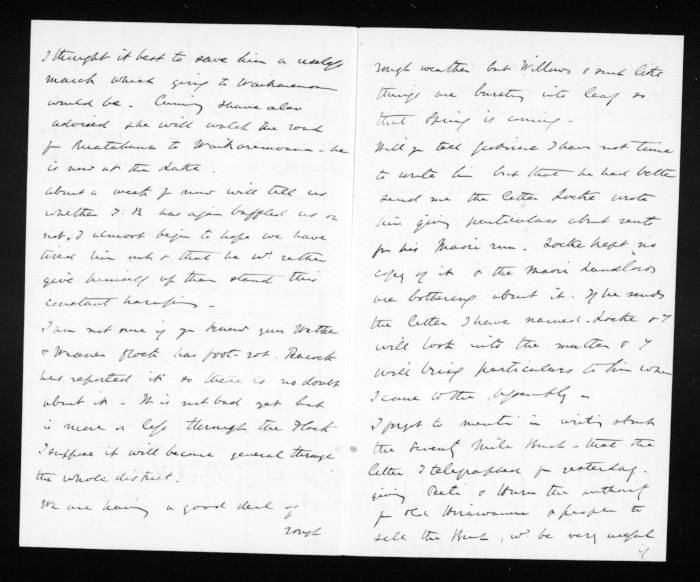 I thought it best to save him a useless
march which going to Waikaremoana
would be. I have also
advised he will watch the road
fr Ruatahuna to Waikaremoana - he
is now at the Lake.
About a week fr now will tell us
whether T. K has again baffled us or
not, I almost begin to hope we have
tired him out & that he wd rather
give himself up than stand this
constant harassing -
I am not sure if you know your Wether
& Weaner flock has foot-rot. Peacock
has reported it so there is no doubt
about it - It is not bad yet but
is more or less through the Flock
I suppose it will become general through
the whole district.
We are having a good deal of
rough
rough weather but Willows & such like
things are bursting into leaf so
that Spring is coming -
Will you tell I have not time
to write him but that he had better
send me the letter Locke wrote
him giving particulars about rents
for his Maori run. Locke kept no
copy of it & the Maori Landlords
are bothering about it. If he sends
the letter I have named - Locke & I
will look into the matter & I
will bring particulars to him when
I come to the Assembly -
I forgot to mention in writing about
the Seventy Mile Bush - that the
letter I telegraphed for yesterday -
giving & the authority
fr old & people to
sell the Bush, wd be very useful
if